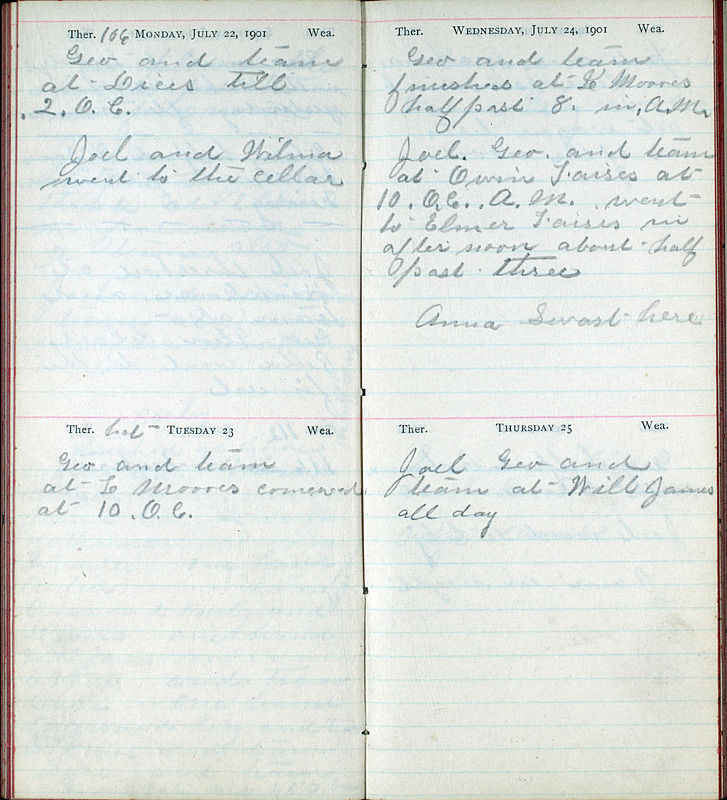 Ther. 106 Monday, July 22, 1901 Wea.
Geo and team
at Dices till
2. O. C.
Joel and Wilma
went to the cellar
Ther. hot Tuesday 23 Wea.
Geo and team
at L Moores comenced
at 10. O. C.
Ther. Wednesday, July 24, 1901 Wea.
Geo and team
finished at L Moores
half past 8. in, A.M,
Joel. Geo. and team
at Owin Faises at
10. O.C. A. M. went
to Elmer Faises in
after noon about half
past three
Anna Swast here
Ther. Thursday 25 Wea.
Joel Geo and
team at Will James
all day